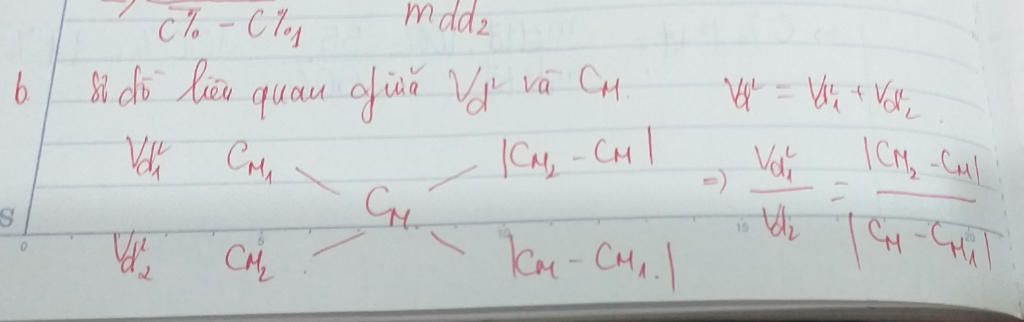 C% - C%1 mdd2
b. Sơ đồ liên quan giữa Vd² và CM. Vd² = Vd²1 + Vd²2.
Vd²1 CM1 |CM2 - CM|
CM => Vd²1 / Vd2 = |CM2 - CM| / |CM - CM1|
Vd²2 CM2 |CM - CM1.|